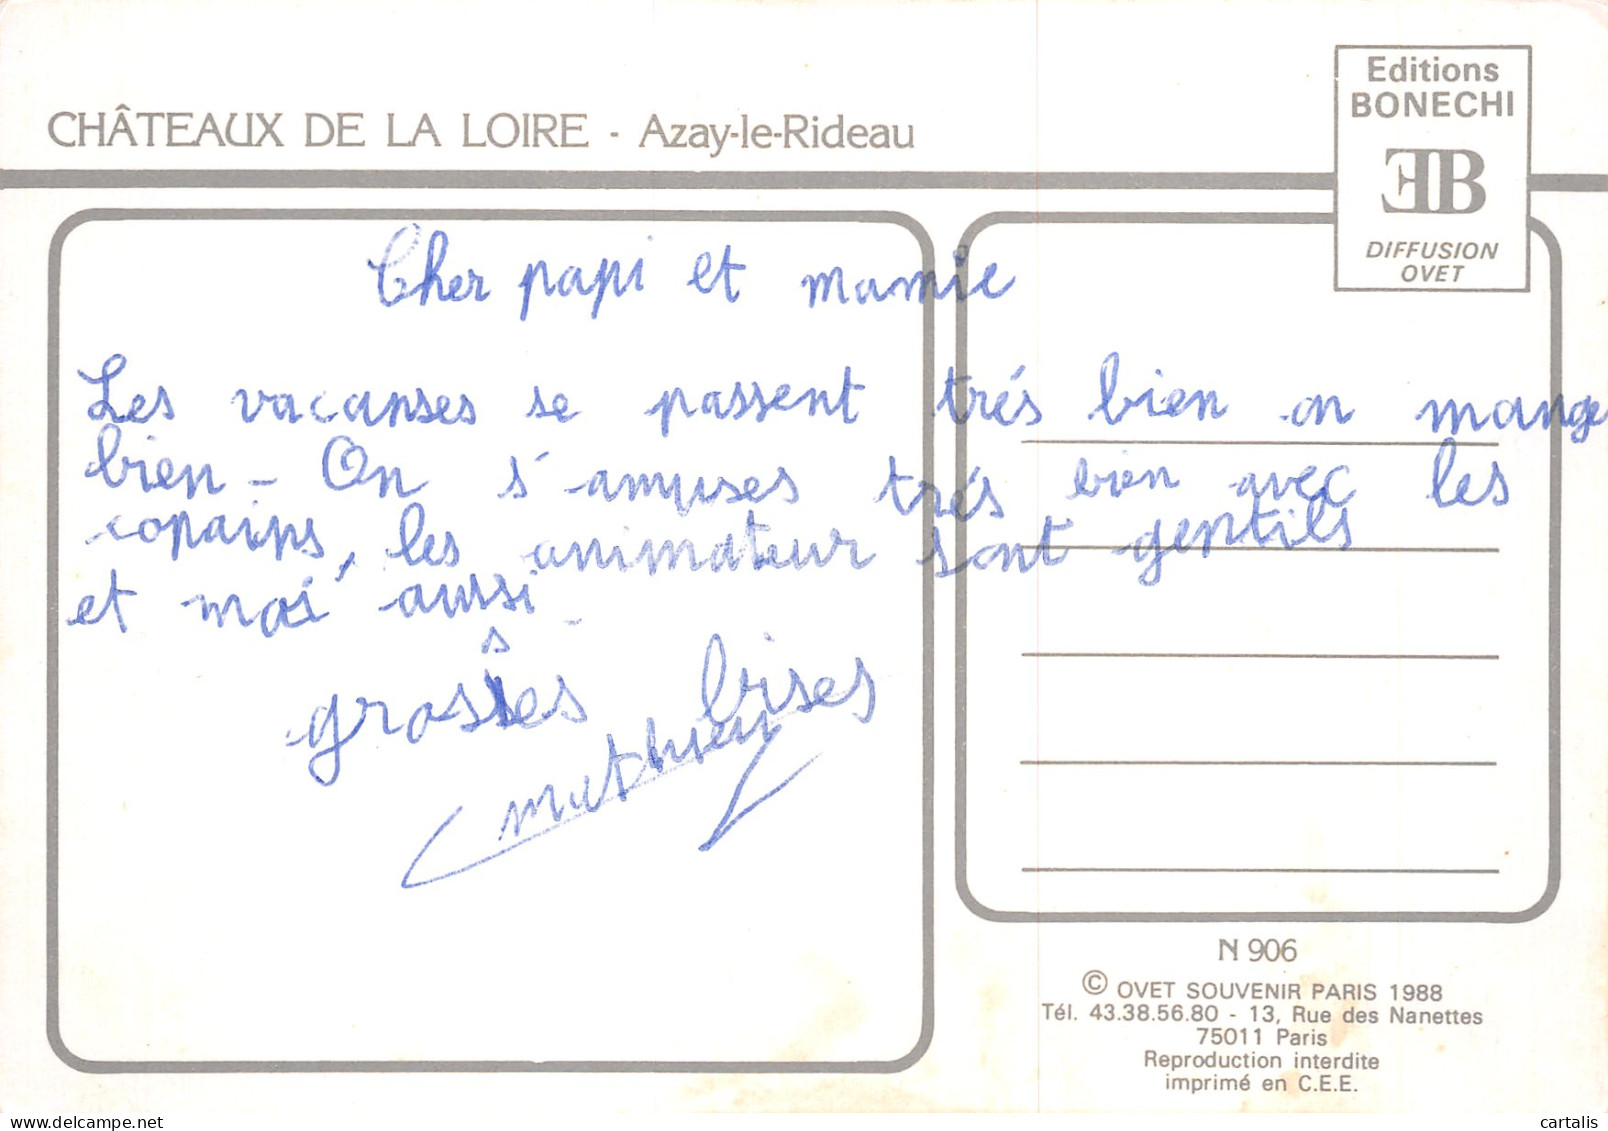 Editions
BONECHI
EB
DIFFUSION
OVET
CHÂTEAUX DE LA LOIRE - Azay-le-Rideau
Cher papi et mamie
Les vacanses se passent trés bien on mange
bien - On s'amuses trés bien avec les
copains, les animateur sont gentils
et moi aussi -
s
grosses bises
mathieu
N 906
© OVET SOUVENIR PARIS 1988
Tél. 43.38.56.80 - 13, Rue des Nanettes
75011 Paris
Reproduction interdite
imprimé en C.E.E.
delcampe.net
cartalis